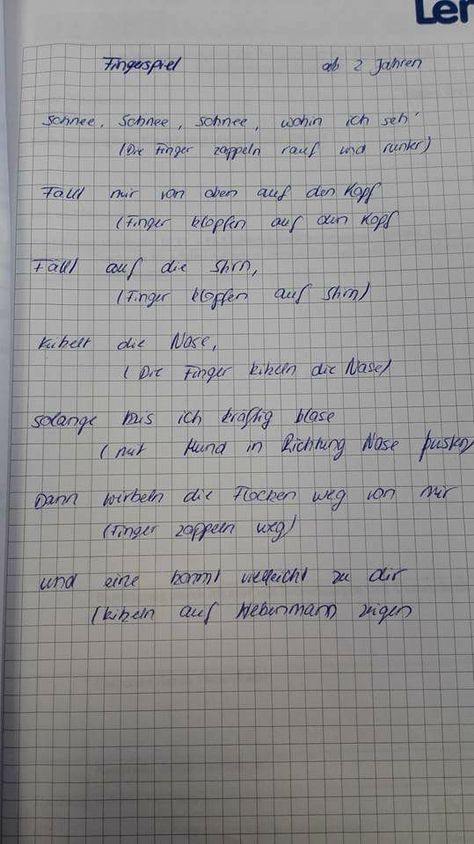 Ler
Fingerspiel ab 2 Jahren
Schnee, Schnee, Schnee, wohin ich seh'
(Die Finger zappeln rauf und runter)
Fällt mir von oben auf den Kopf
(Finger klopfen auf den Kopf
Fällt auf die Stirn,
(Finger klopfen auf Stirn)
Kitzelt die Nase,
(Die Finger kitzeln die Nase)
solange bis ich kräftig blase
(mit Mund in Richtung Nase pusten)
Dann wirbeln die Flocken weg von mir
(Finger zappeln weg)
und eine kommt vielleicht zu dir
(kitzeln auf Nebenmann zeigen